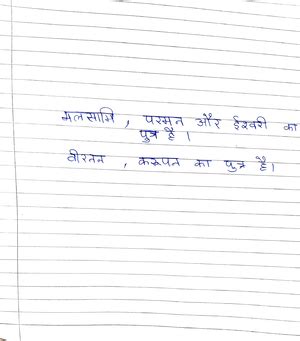 मलसामि, परमन और ईश्वरी का
पुत्र है।
वीरनन, करूपन का पुत्र है।